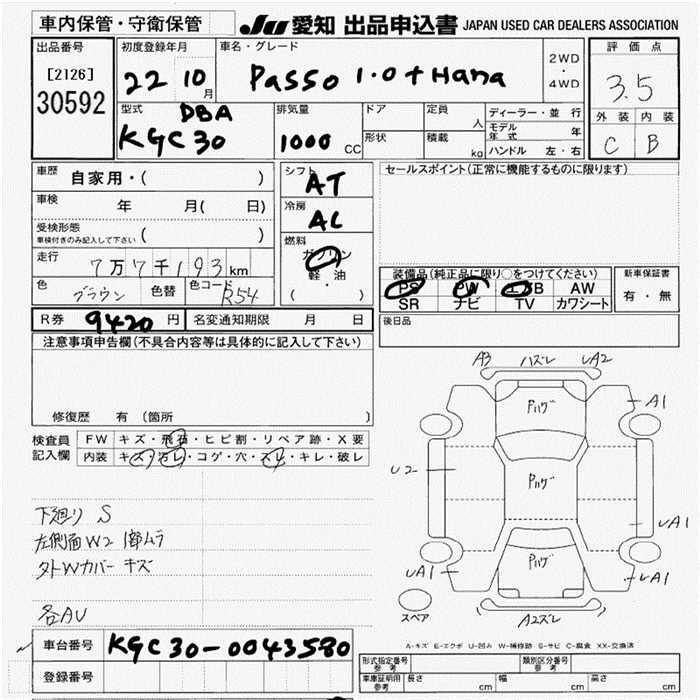 車内保管・守衛保管 JU 愛知 出品申込書 JAPAN USED CAR DEALERS ASSOCIATION
出品番号 初度登録年月 車名・グレード 2WD・4WD 評価点
[2126] 22 10月 Passo 1.0+Hana 3.5
30592
型式 DBA 排気量 ドア 定員 人 ディーラー・並行 外装 内装
KGC30 1000 CC 形状 積載 kg モデル年式 年 C B
ハンドル 左・右
車歴 自家用・( ) シフト AT セールスポイント(正常に機能するものに限ります)
車検 年 月( 日) 冷房 AC
受検形態 ( )
車検付きのみ記入して下さい
燃料 ガソリン
走行 7万7千193km 軽油
装備品(純正品に限り○をつけてください) 新車保証書
色 ブラウン 色替 色コード R54 ( ・ )
PS PW エアB AW 有・無
SR ナビ TV カワシート
R券 9420円 名変通知期限 月 日 後日品
注意事項申告欄(不具合内容等は具体的に記入して下さい)
修復歴 有 (箇所 )
検査員記入欄 FW キズ・飛石・ヒビ割・リペア跡・X要
内装 キズ・汚レ・コゲ・穴・スレ・キレ・破レ
A3 ハズレ UA2
Pハゲ
A1
U2 Pハゲ
UA1
Pハゲ
UA1 UA1
スペア A2ズレ
下廻り S
左側面W2 1部ムラ
タトWカバー キズ
各AU
A-キズ E-エクボ U-凹み W-補修跡 S-サビ C-腐食 XX-交換済
車台番号 KGC30-0043580
登録番号
形式指定番号 参考 類別区分番号 参考
車庫証明用 参考 長さ cm 幅 cm 高さ cm